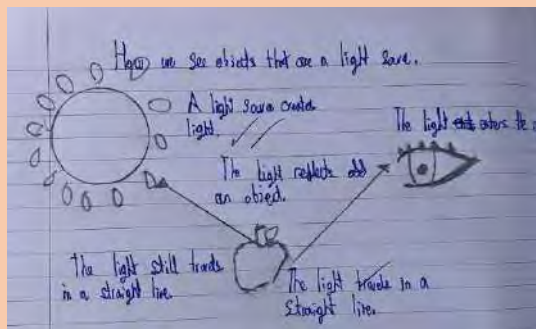 How we see objects that are a light soure.
A light soure creates
light.
The light enters the
The light reflects odd
an object.
The light still travels
in a straight line.
The light travels in a
straight line.